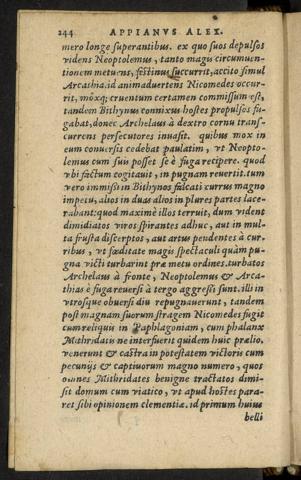 244 APPIANVS ALEX.
mero longe superantibus. ex quo suos depulsos
videns Neoptolemus, tanto magis circumuen-
tionem metuens, festinus succurrit, accito simul
Arcathia. id animaduertens Nicomedes occur-
rit, móxq; cruentum certamen commissum est,
tandem Bithynus connixus hostes propulsos fu-
gabat, donec Archelaus à dextro cornu trans-
currens persecutores inuasit. quibus mox in
eum conuersis cedebat paulatim, vt Neopto-
lemus cum suis posset se è fuga recipere. quod
vbi factum cogitauit, in pugnam reuertit. tum
vero immissi in Bithynos falcati currus magno
impetu, alios in duas alios in plures partes lace-
rabant: quod maximè illos terruit, dum vident
dimidiatos viros spirantes adhuc, aut in mul-
ta frusta discerptos, aut artus pendentes à cur-
ribus, vt fœditate magis spectaculi quàm pu-
gna victi turbarint præ metu ordines. turbatos
Archelaus à fronte, Neoptolemus & Arca-
thias è fuga reuersi à tergo aggressi sunt. illi in
vtrosque obuersi diu repugnauerunt, tandem
post magnam suorum stragem Nicomedes fugit
cum reliquis in Paphlagoniam, cum phalanx
Mithridatis ne interfuerit quidem huic prælio.
venerunt & castra in potestatem victoris cum
pecunijs & captiuorum magno numero, quos
omnes Mithridates benigne tractatos dimi-
sit domum cum viatico, vt apud hostes para-
ret sibi opinionem clementiæ. id primum huius
belli